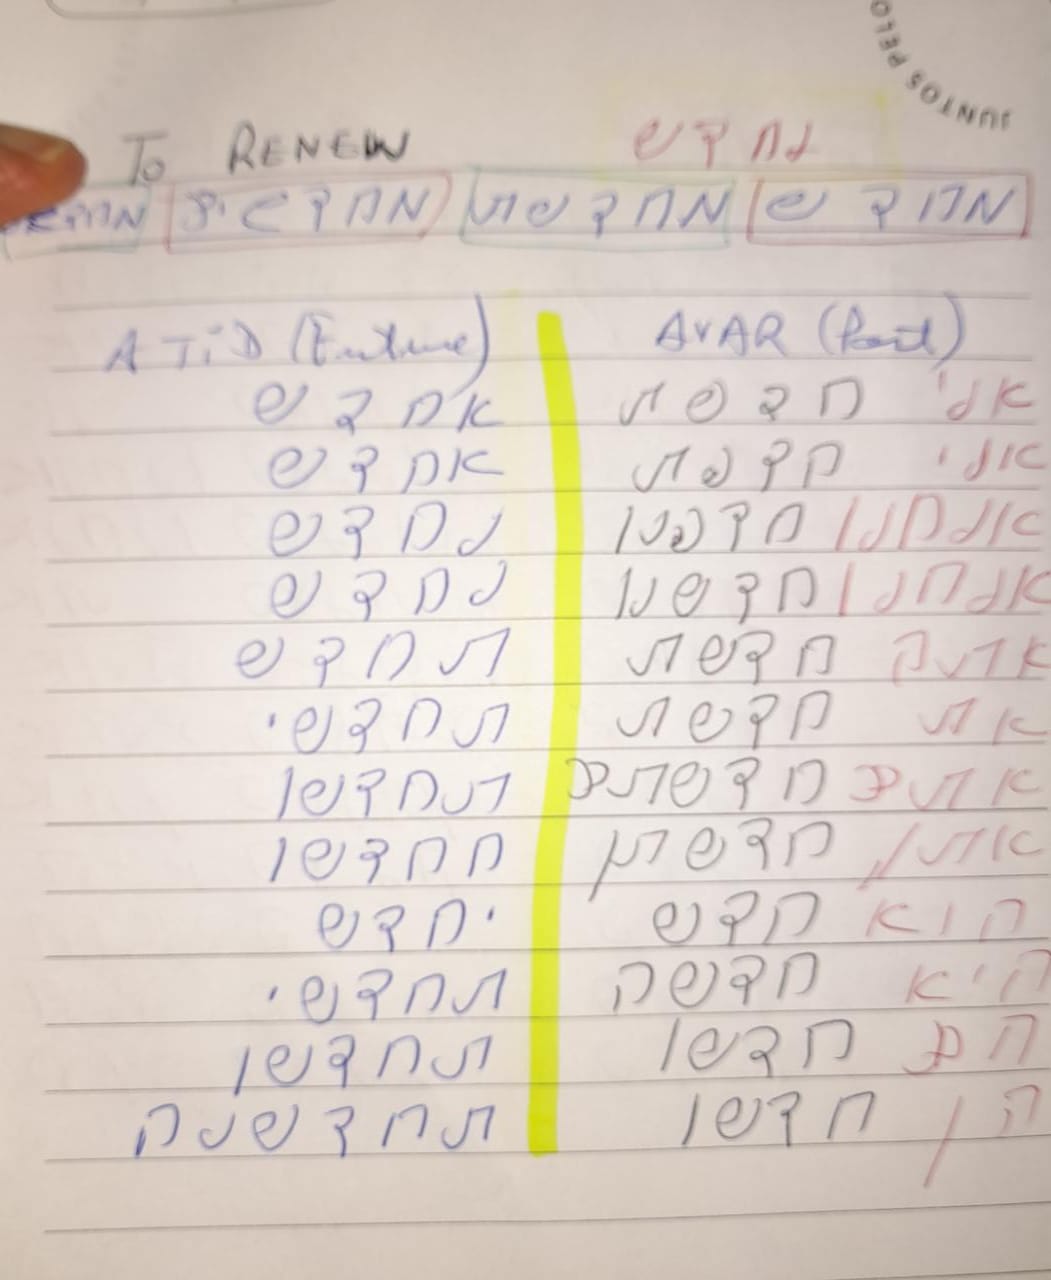 JUNTOS PELO
To RENEW לחדש
מחדש מחדשת מחדשים
AVAR (Past) ATiD (Future)
אני חדשת אחדש
אני חדשת אחדש
אנחנו חדשנו נחדש
אנחנו חדשנו נחדש
אתה חדשת תחדש
את חדשת תחדשי
אתם חדשתם תחדשו
אתן חדשתן תחדשו
הוא חדש יחדש
היא חדשה תחדשי
הם חדשו תחדשו
הן חדשו תחדשנה